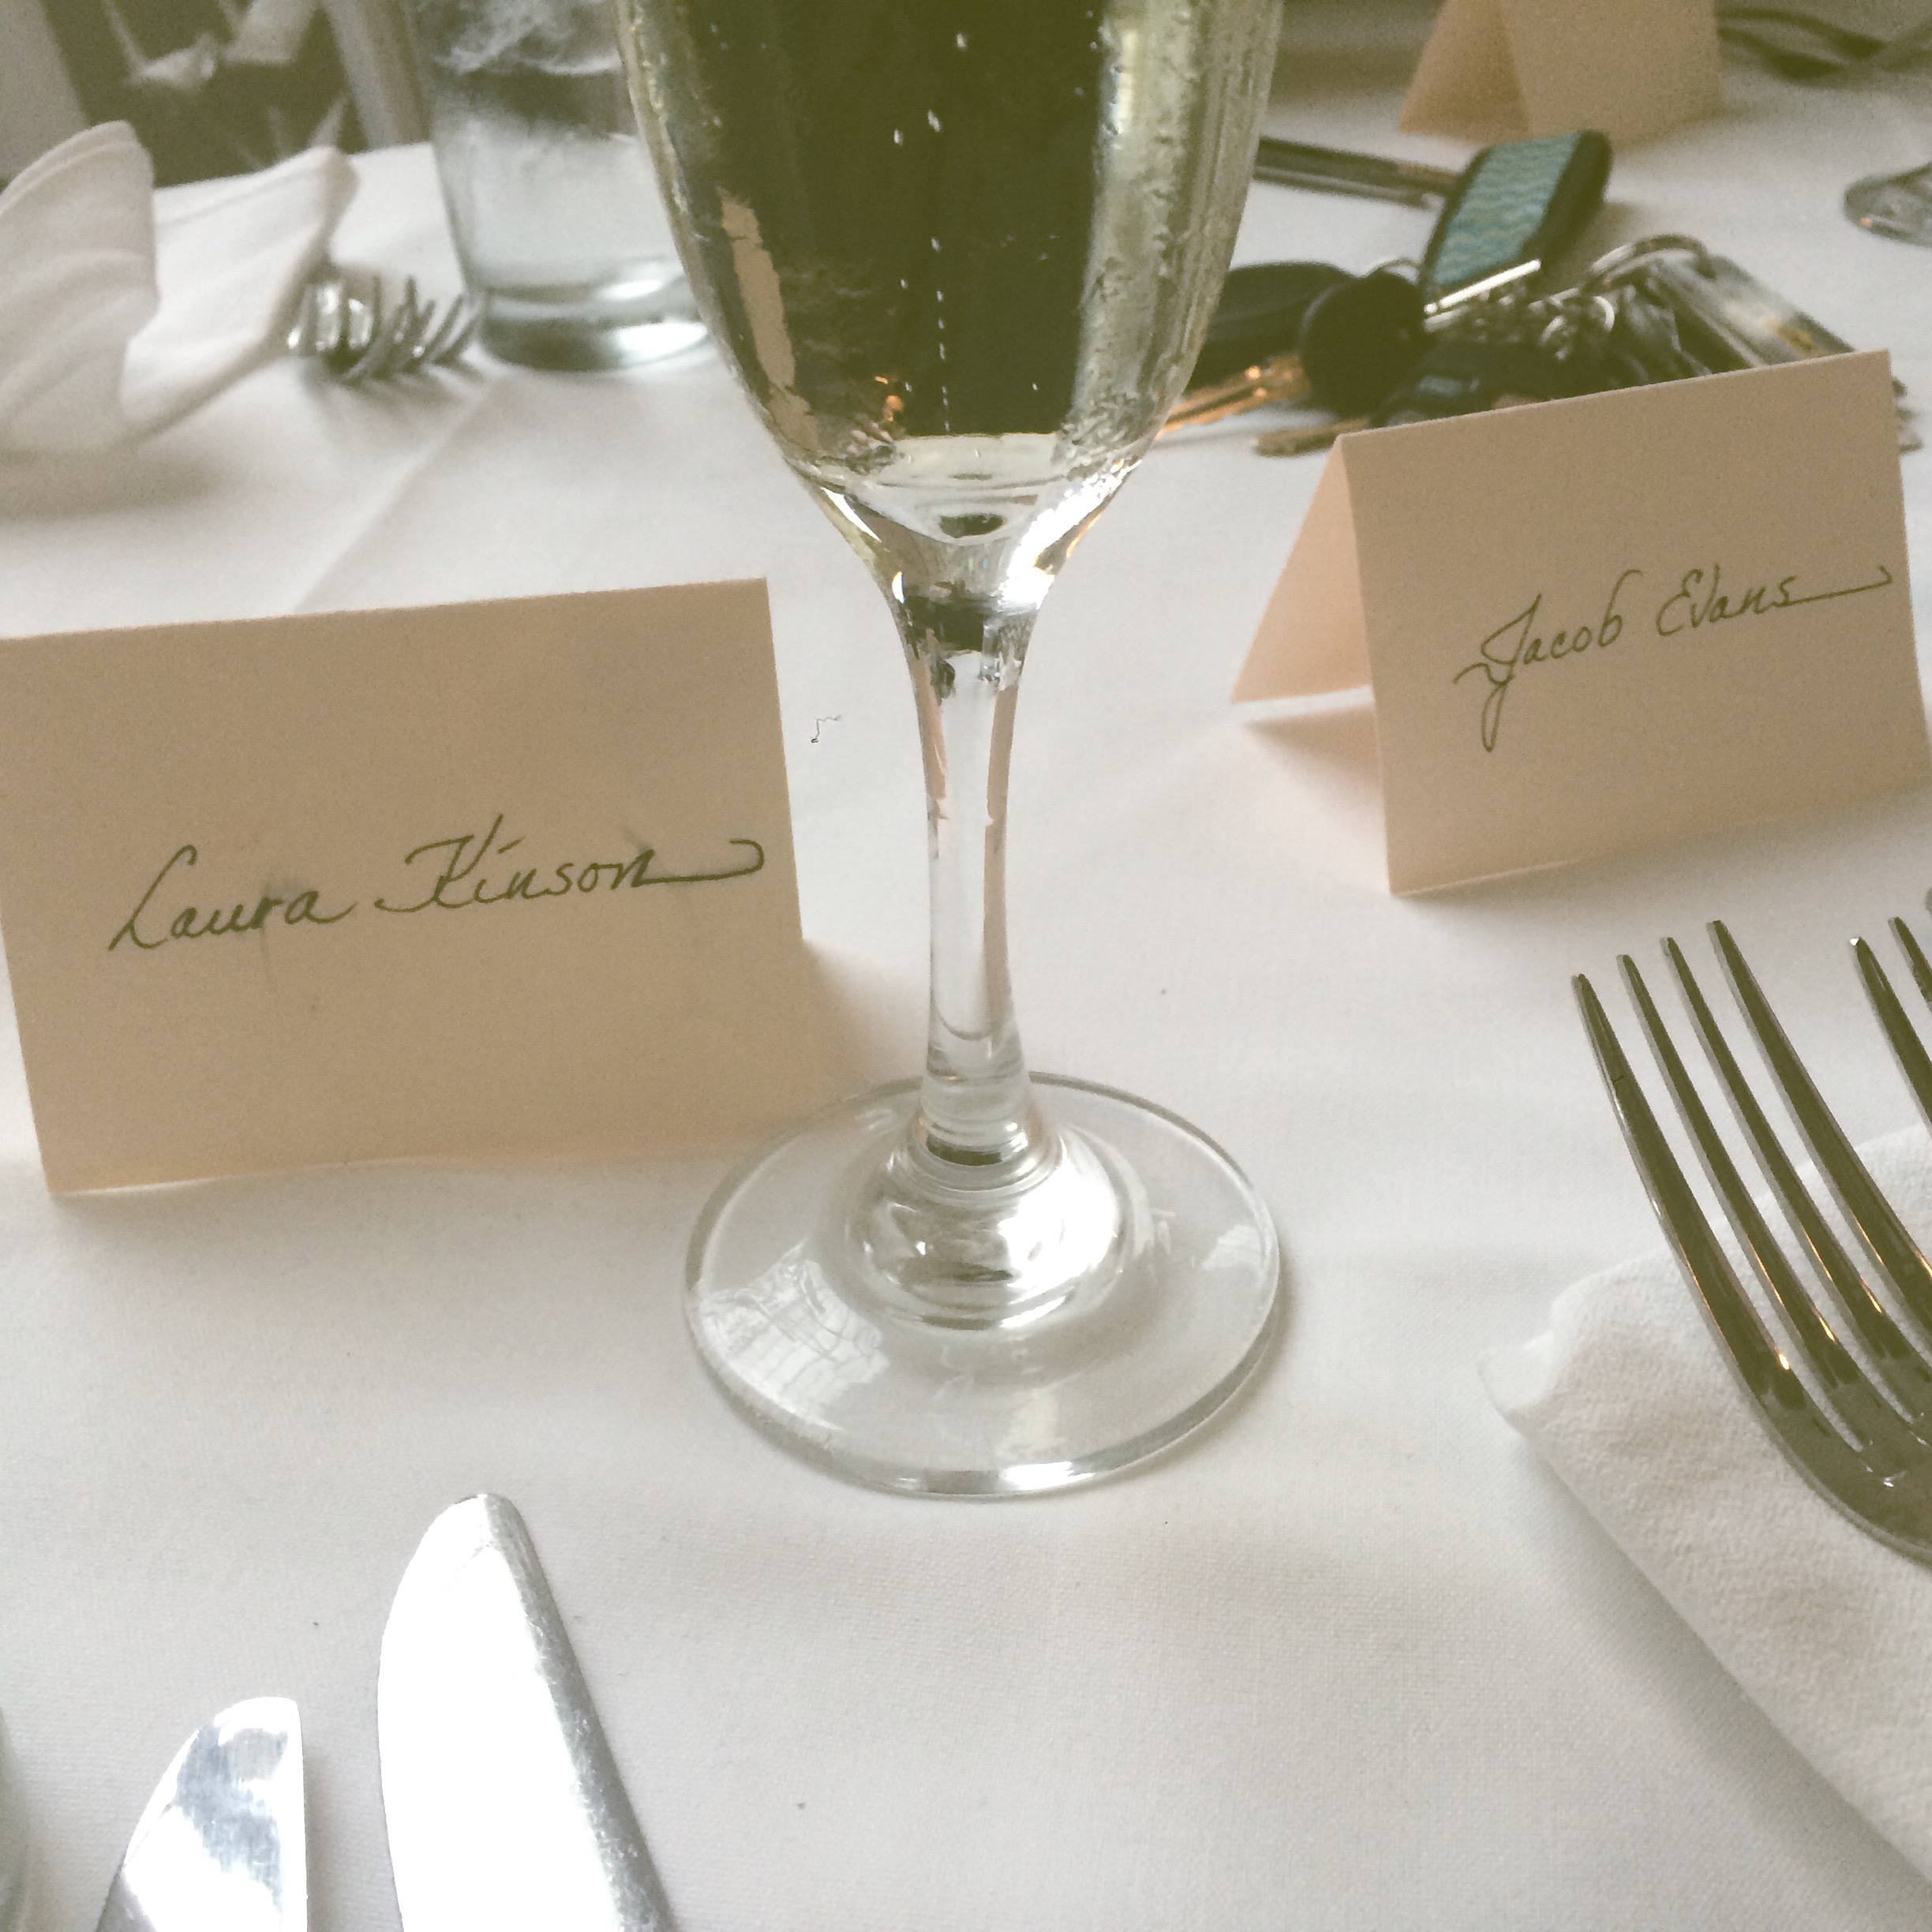 Laura Kinson
Jacob Evans